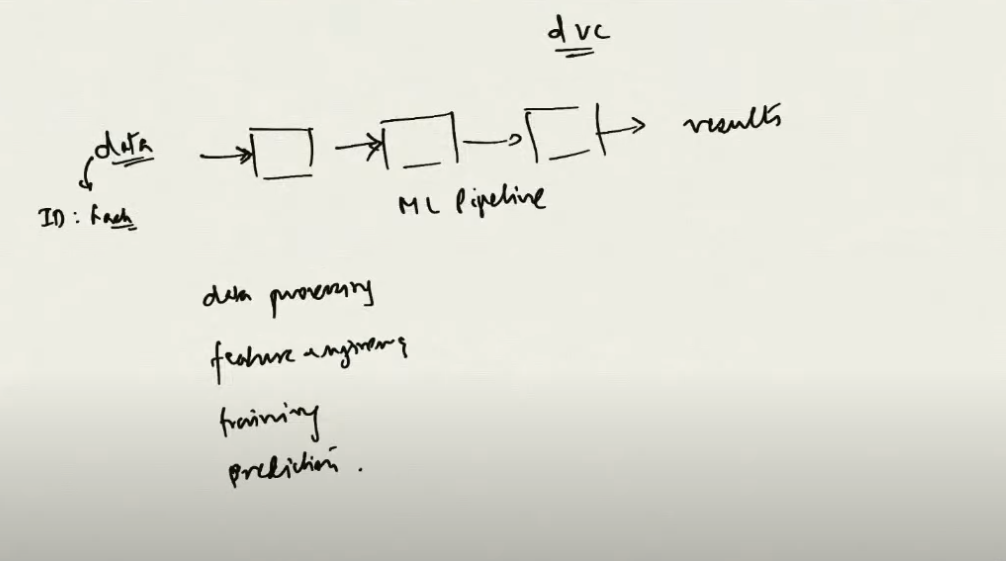 dvc
data
results
ID: hash
ML Pipeline
data processing
feature engineering
training
prediction.